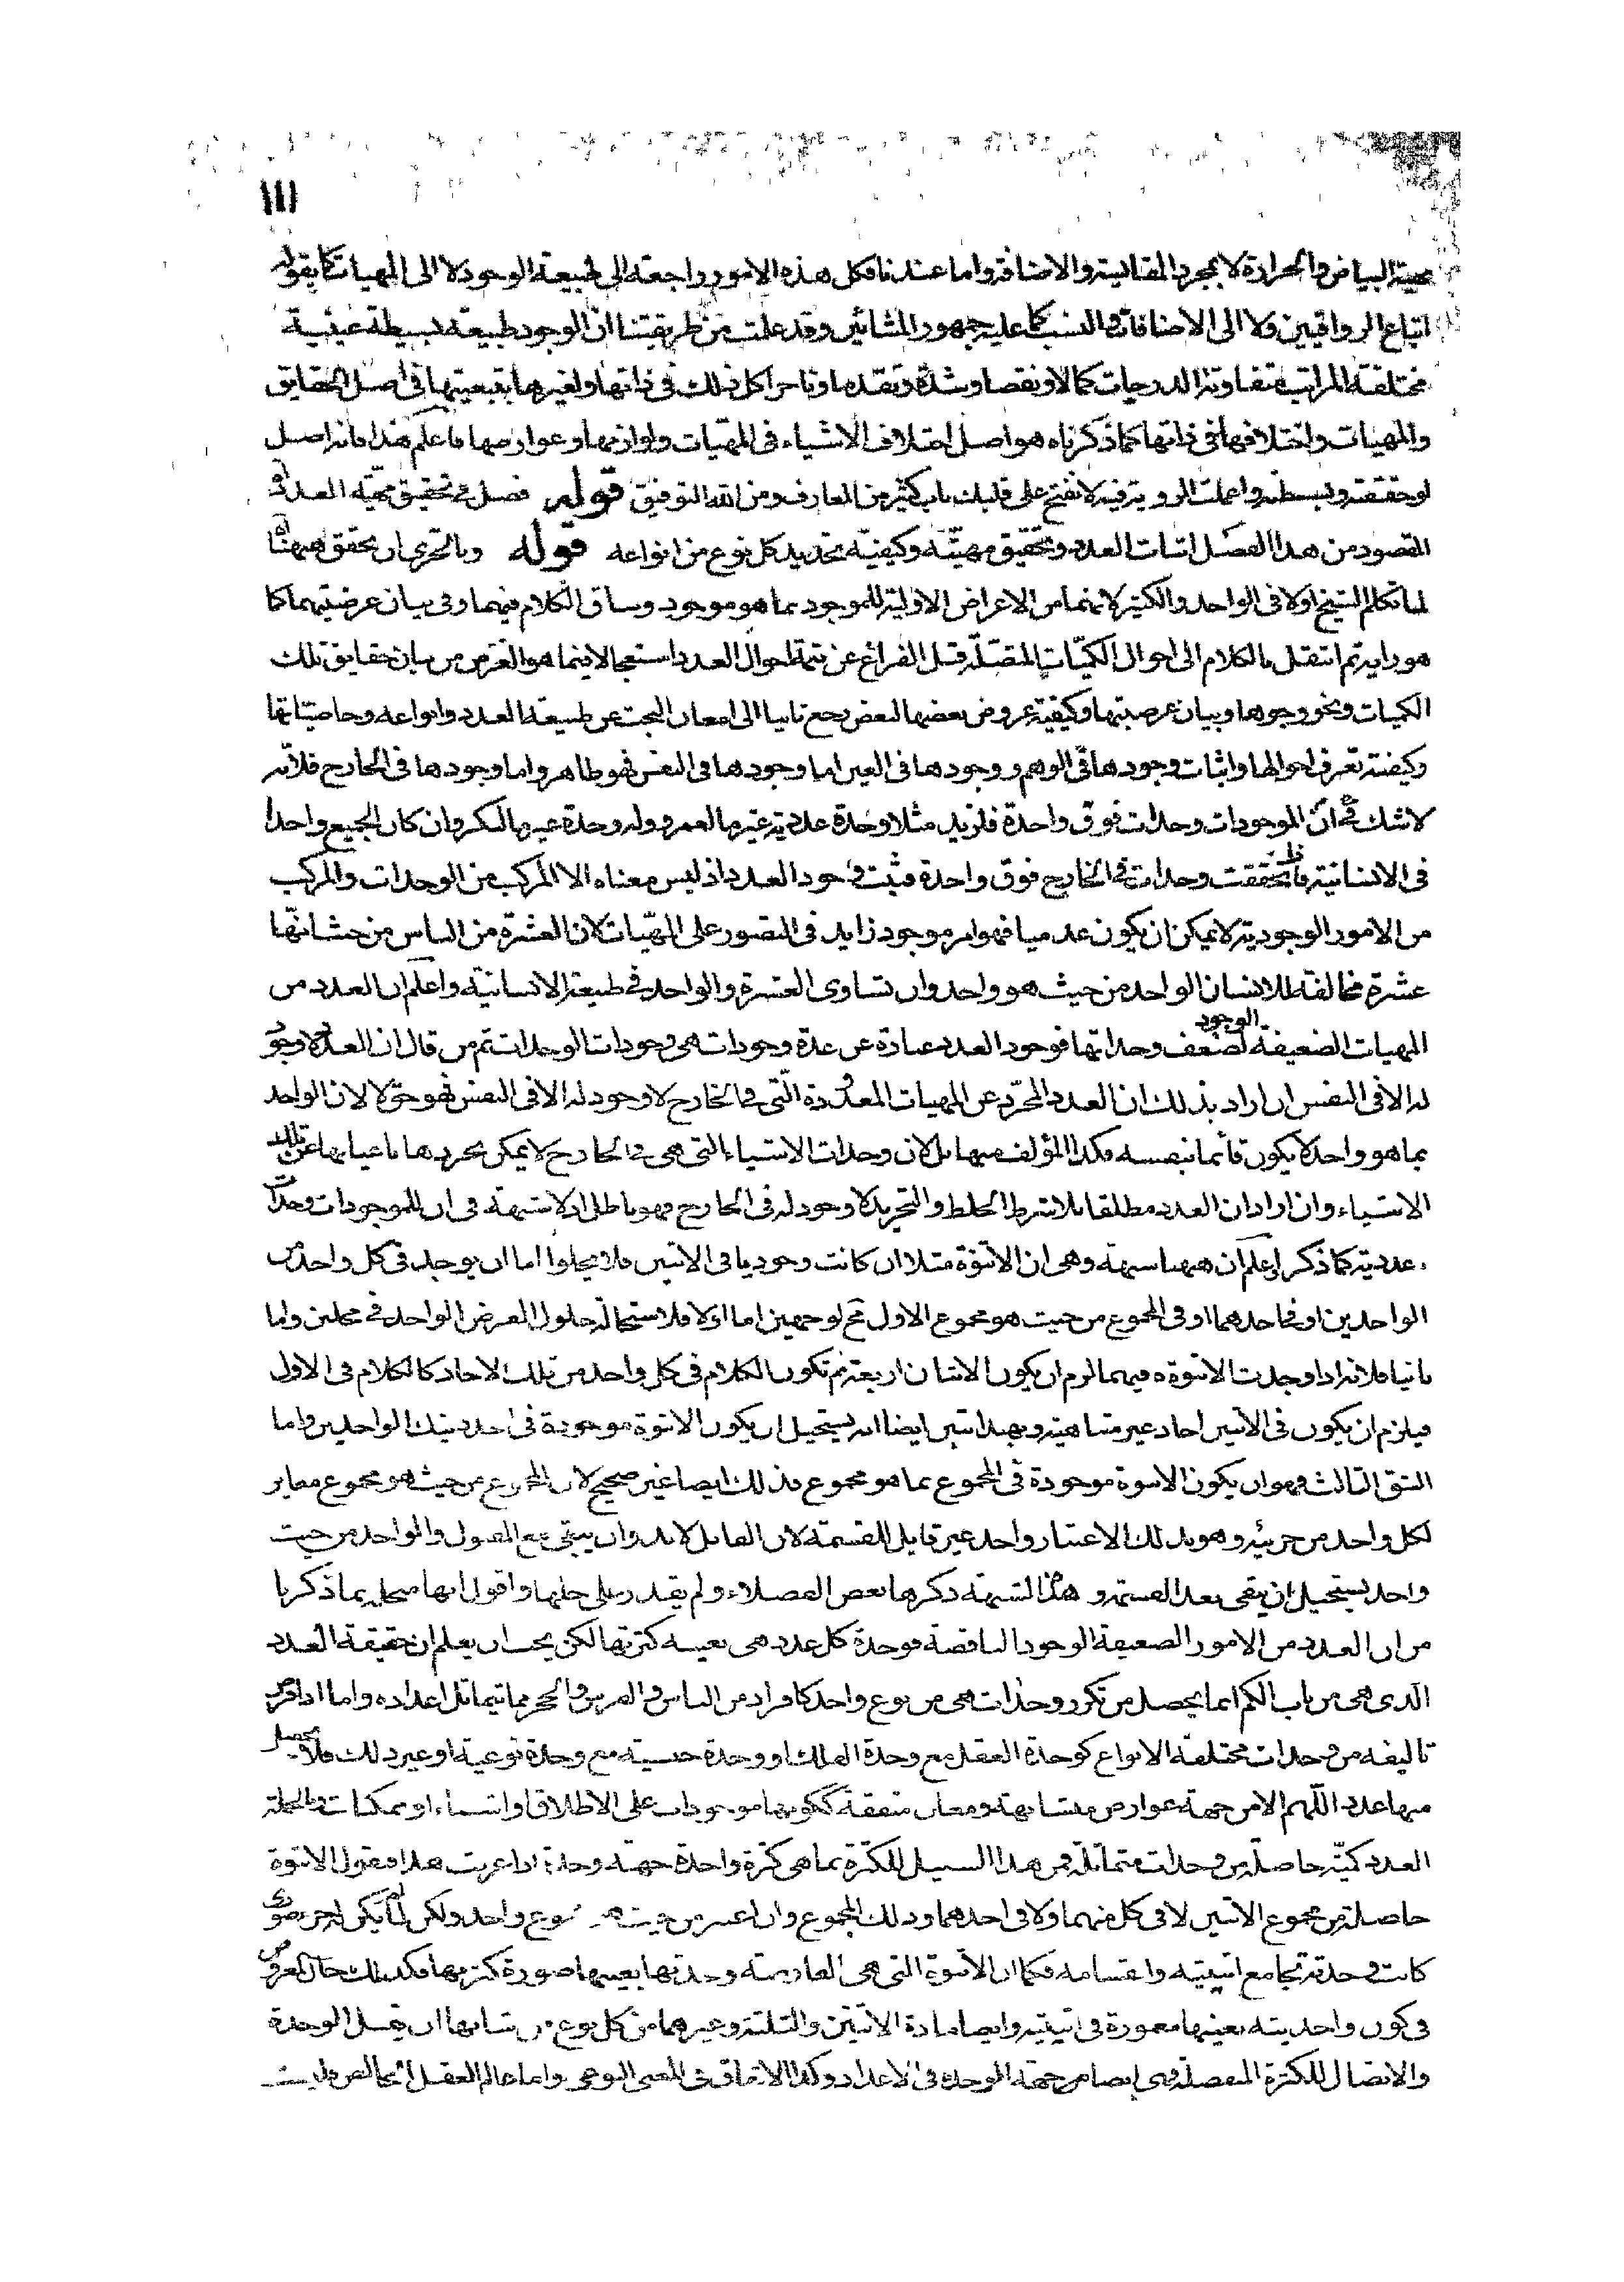 ١١١
مهية البياض والحرارة لا بمجرد المقايسة والاضافة واما عندنا فكل هذه الامور راجعة الى طبيعة الوجود لا الى المهيات كما يقوله
اتباع الرواقيين ولا الى الاضافات والنسب كما عليه جمهور المشائين وقد علمت من طريقتنا ان الوجود طبيعة بسيطة عينية
مختلفة المراتب متفاوتة الدرجات كمالا ونقصا وشدة وتقدما وتاخرا كل ذلك فى ذاتها ولغيرها بتبعيتها فى اصل الحقايق
والمهيات واختلافها فى ذاتها كما ذكرناه هو اصل اختلاف الاشياء فى المهيات ولوازمها وعوارضها فاعلم هذا فانه اصل
لو حققته وبسطته واعملت الروية فيه لانفتح على قلبك باب كثير من المعارف ومن الله التوفيق قوله فصل فى تحقيق مهية العدد
المقصود من هذا الفصل اثبات العدد وتحقيق مهيته وكيفية تحديد كل نوع من انواعه قوله وبالحرى ان يحقق ههنا
لما تكلم الشيخ اولا فى الواحد والكثير لانهما من الاعراض الاولية للموجود بما هو موجود وساق الكلام فيهما وفى بيان عرضيتهما كما
هو دابه ثم انتقل بالكلام الى احوال الكميات المتصلة قبل الفراغ عن تتمة احوال العدد استعجالا فيما هو الغرض من بيان حقايق تلك
الكميات ونحو وجودها وبيان عرضيتها وكيفية عروض بعضها لبعض رجع ثانيا الى امعان البحث عن طبيعة العدد وانواعه وخاصياتها
وكيفية تعرف احوالها واثبات وجودها فى الوهم ووجودها فى العين اما وجودها فى النفس فهو ظاهر واما وجودها فى الخارج فلانه
لا شك فى ان للموجودات وحدات فوق واحدة فلزيد مثلا وحدة عددية غير ما لعمرو وله وحدة غير ما لبكر وان كان الجميع واحدا
فى الانسانية فاذا تحققت وحدات فى الخارج فوق واحدة فثبت وجود العدد اذ ليس معناه الا المركب من الوحدات والمركب
من الامور الوجودية لا يمكن ان يكون عدميا فهو امر موجود زايد فى التصور على المهيات لان العشرة من الناس من حيث انها
عشرة مخالفة للانسان الواحد من حيث هو واحد وان تساوى العشرة والواحد فى طبيعة الانسانية واعلم ان العدد من
المهيات الضعيفة الوجود لضعف وحداتها فوجود العدد عبارة عن عدة وجودات هى وجودات الوحدات ثم من قال ان العدد لا وجود
له الا فى النفس ان اراد بذلك ان العدد المجرد عن المهيات المعدودة التى فى الخارج لا وجود له الا فى النفس فهو حق لا لان الواحد
بما هو واحد لا يكون قائما بنفسه فكذا المؤلف منها بل لان وحدات الاشياء التى هى فى الخارج لا يمكن تجردها باعيانها عن تلك
الاشياء وان اراد ان العدد مطلقا بلا شرط الخلط والتجريد لا وجود له فى الخارج فهو باطل اذ لا شبهة فى ان للموجودات وحدات
عددية كما ذكر اعلم ان ههنا شبهة وهى ان الاثنوة مثلا ان كانت وجوديا فى الاثنين فلا يخلوا اما ان يوجد فى كل واحد من
الواحدين او فى احدهما او فى المجموع من حيث هو مجموع الاول مح لوجهين اما اولا فلاستحالة حلول العرض الواحد فى محلين واما
ثانيا فلانه اذا وجدت الاثنوة فيهما لزم ان يكون الاثنان اربعة ثم نكون الكلام فى كل واحد من تلك الاحاد كالكلام فى الاول
فيلزم ان يكون فى الاثنين احاد غير متناهية وبهذا تبين ايضا انه يستحيل ان يكون الاثنوة موجودة فى احد ذينك الواحدين واما
الشق الثالث فهو ان يكون الاثنوة موجودة فى المجموع بما هو مجموع فذلك ايضا غير صحيح لان المجموع من حيث هو مجموع مغاير
لكل واحد من جزئيه وهو بذلك الاعتبار واحد غير قابل للقسمة لان القابل لا بد وان يبقى مع المقبول والواحد من حيث
واحد يستحيل ان يبقى بعد القسمة و هذا الشبهة ذكرها بعض الفضلاء ولم يقدر على حلها واقول انها منحلة بما ذكرنا
من ان العدد من الامور الضعيفة الوجود الناقصة فوحدة كل عدد هى بعينه كثرتها لكن يجب ان يعلم ان حقيقة العدد
الذى هى من باب الكم انما يحصل من تكرر وحدات هى من نوع واحد كافراد من الناس والفرس والحجر مما يتماثل اعداده واما اذا فرض
تاليفه من وحدات مختلفة الانواع كوحدة العقل مع وحدة الفلك او وحدة جنسية مع وحدة نوعية او غير ذلك فلا يحصل
منها عدد اللهم الا من جهة عوارض متشابهة ومعان متفقة ككونها موجودات على الاطلاق او اشياء او ممكنات وبالجملة
العدد كمية حاصلة من وحدات متماثلة فمن هذا السبيل للكثرة بما هى كثرة واحدة جهة وحدة اذا عرفت هذا فنقول الاثنوة
حاصلة من مجموع الاثنين لا فى كل منهما ولا فى احدهما وذلك المجموع وان اعتبر من حيث هو نوع واحد ولكن لما لم يكن له جزء صورى
كانت وحدته تجامع اثنينيته وانقسامه فكما ان الاثنوة التى هى العارضة وحدتها بعينها صورة كثرتها فكذلك حال المعروض
فى كون واحديته بعينها مغمورة فى اثنينيته وايضا مادة الاثنين والثلثة وغيرهما من كل نوع من شانها ان يقبل الوحدة
والاتصال للكثرة المنفصلة فهى ايضا من جهة الوحدة فى الاعداد وكذا الاتفاق فى المعنى النوعى واما عالم العقل الخالص فليست